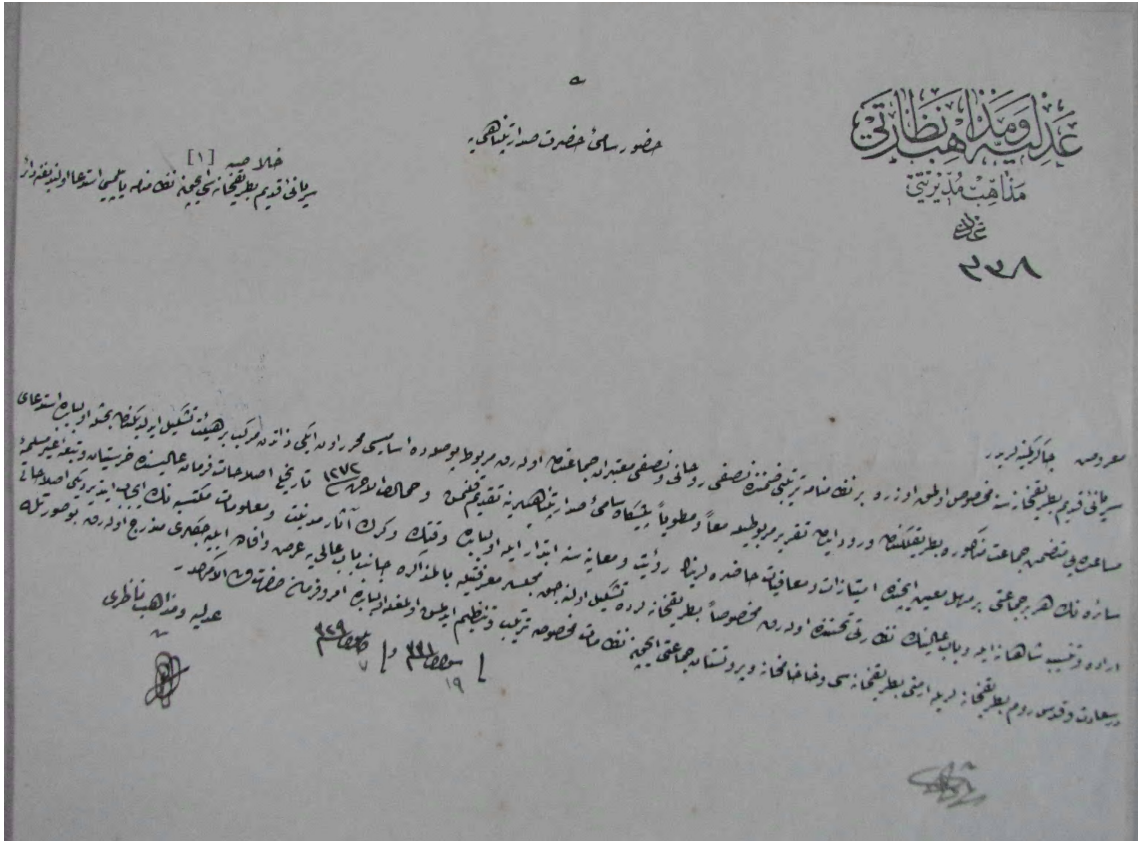 عدليه ومذاهب نظارتى
مذاهب مديريتى
عدد
٣٣٨
حضور سامئ حضرت صدارتپناهى يه
خلاصه [١]
سريانى قديم بطريقخانه سى ايچون نظامنامه ياپلمسى استدعا اولنديغنه دائر
معروض چاكر كمينه لريدر
سريانى قديم بطريقخانه سنه مخصوص اولمق اوزره بر نظامنامه ترتيبى ضمننده نصفى روحانى ونصفى معتبران جماعتدن اوله رق مربوط پوصله ده اساميسى محرر اون ايكى ذاتدن مركب بر هيئت تشكيل ايدلديكندن بحثله اولبابده استدعاى
مساعده يى متضمن جماعت مذكوره بطريقلكندن ورود ايدن تقرير مربوطيله معاً ومطوياً پيشگاه سامئ صدارتپناهيلرينه تقديم قلنمش و جمادى الاخر ١٢٧٢ تاريخلى اصلاحات فرمان عاليسنده خرستيان وتبعه غير مسلمه
سائره نك هر بر جماعتى بر مهل معين ايچنده امتيازات ومعافيات حاضره لرينك رؤيت ومعاينه سنه ابتدار ايله اولبابده وقتك وگرك آثار مدنيت ومعلومات مكتسبه نك ايجاب ايتديرديكى اصلاحاتى
اراده وتنسيب شاهانه ايله وباب عالينك نظارتى تحتنده اوله رق مخصوصاً بطريقخانه لرده تشكيل اولنه جق مجلسلر معرفتيله بالمذاكره جانب باب عالى يه عرض وافاده ايله جكلرى مندرج اوله رق بوصورتله
درسعادت وقدس روم بطريقخانه لريله ارمنى بطريقخانه سى وخاخامخانه وپروتستان جماعتى ايچون نظامات مخصوصه ترتيب وتنظيم ايدلمش اولمغله اولبابده امر وفرمان حضرت من له الامركدر
عدليه ومذاهب ناظرى